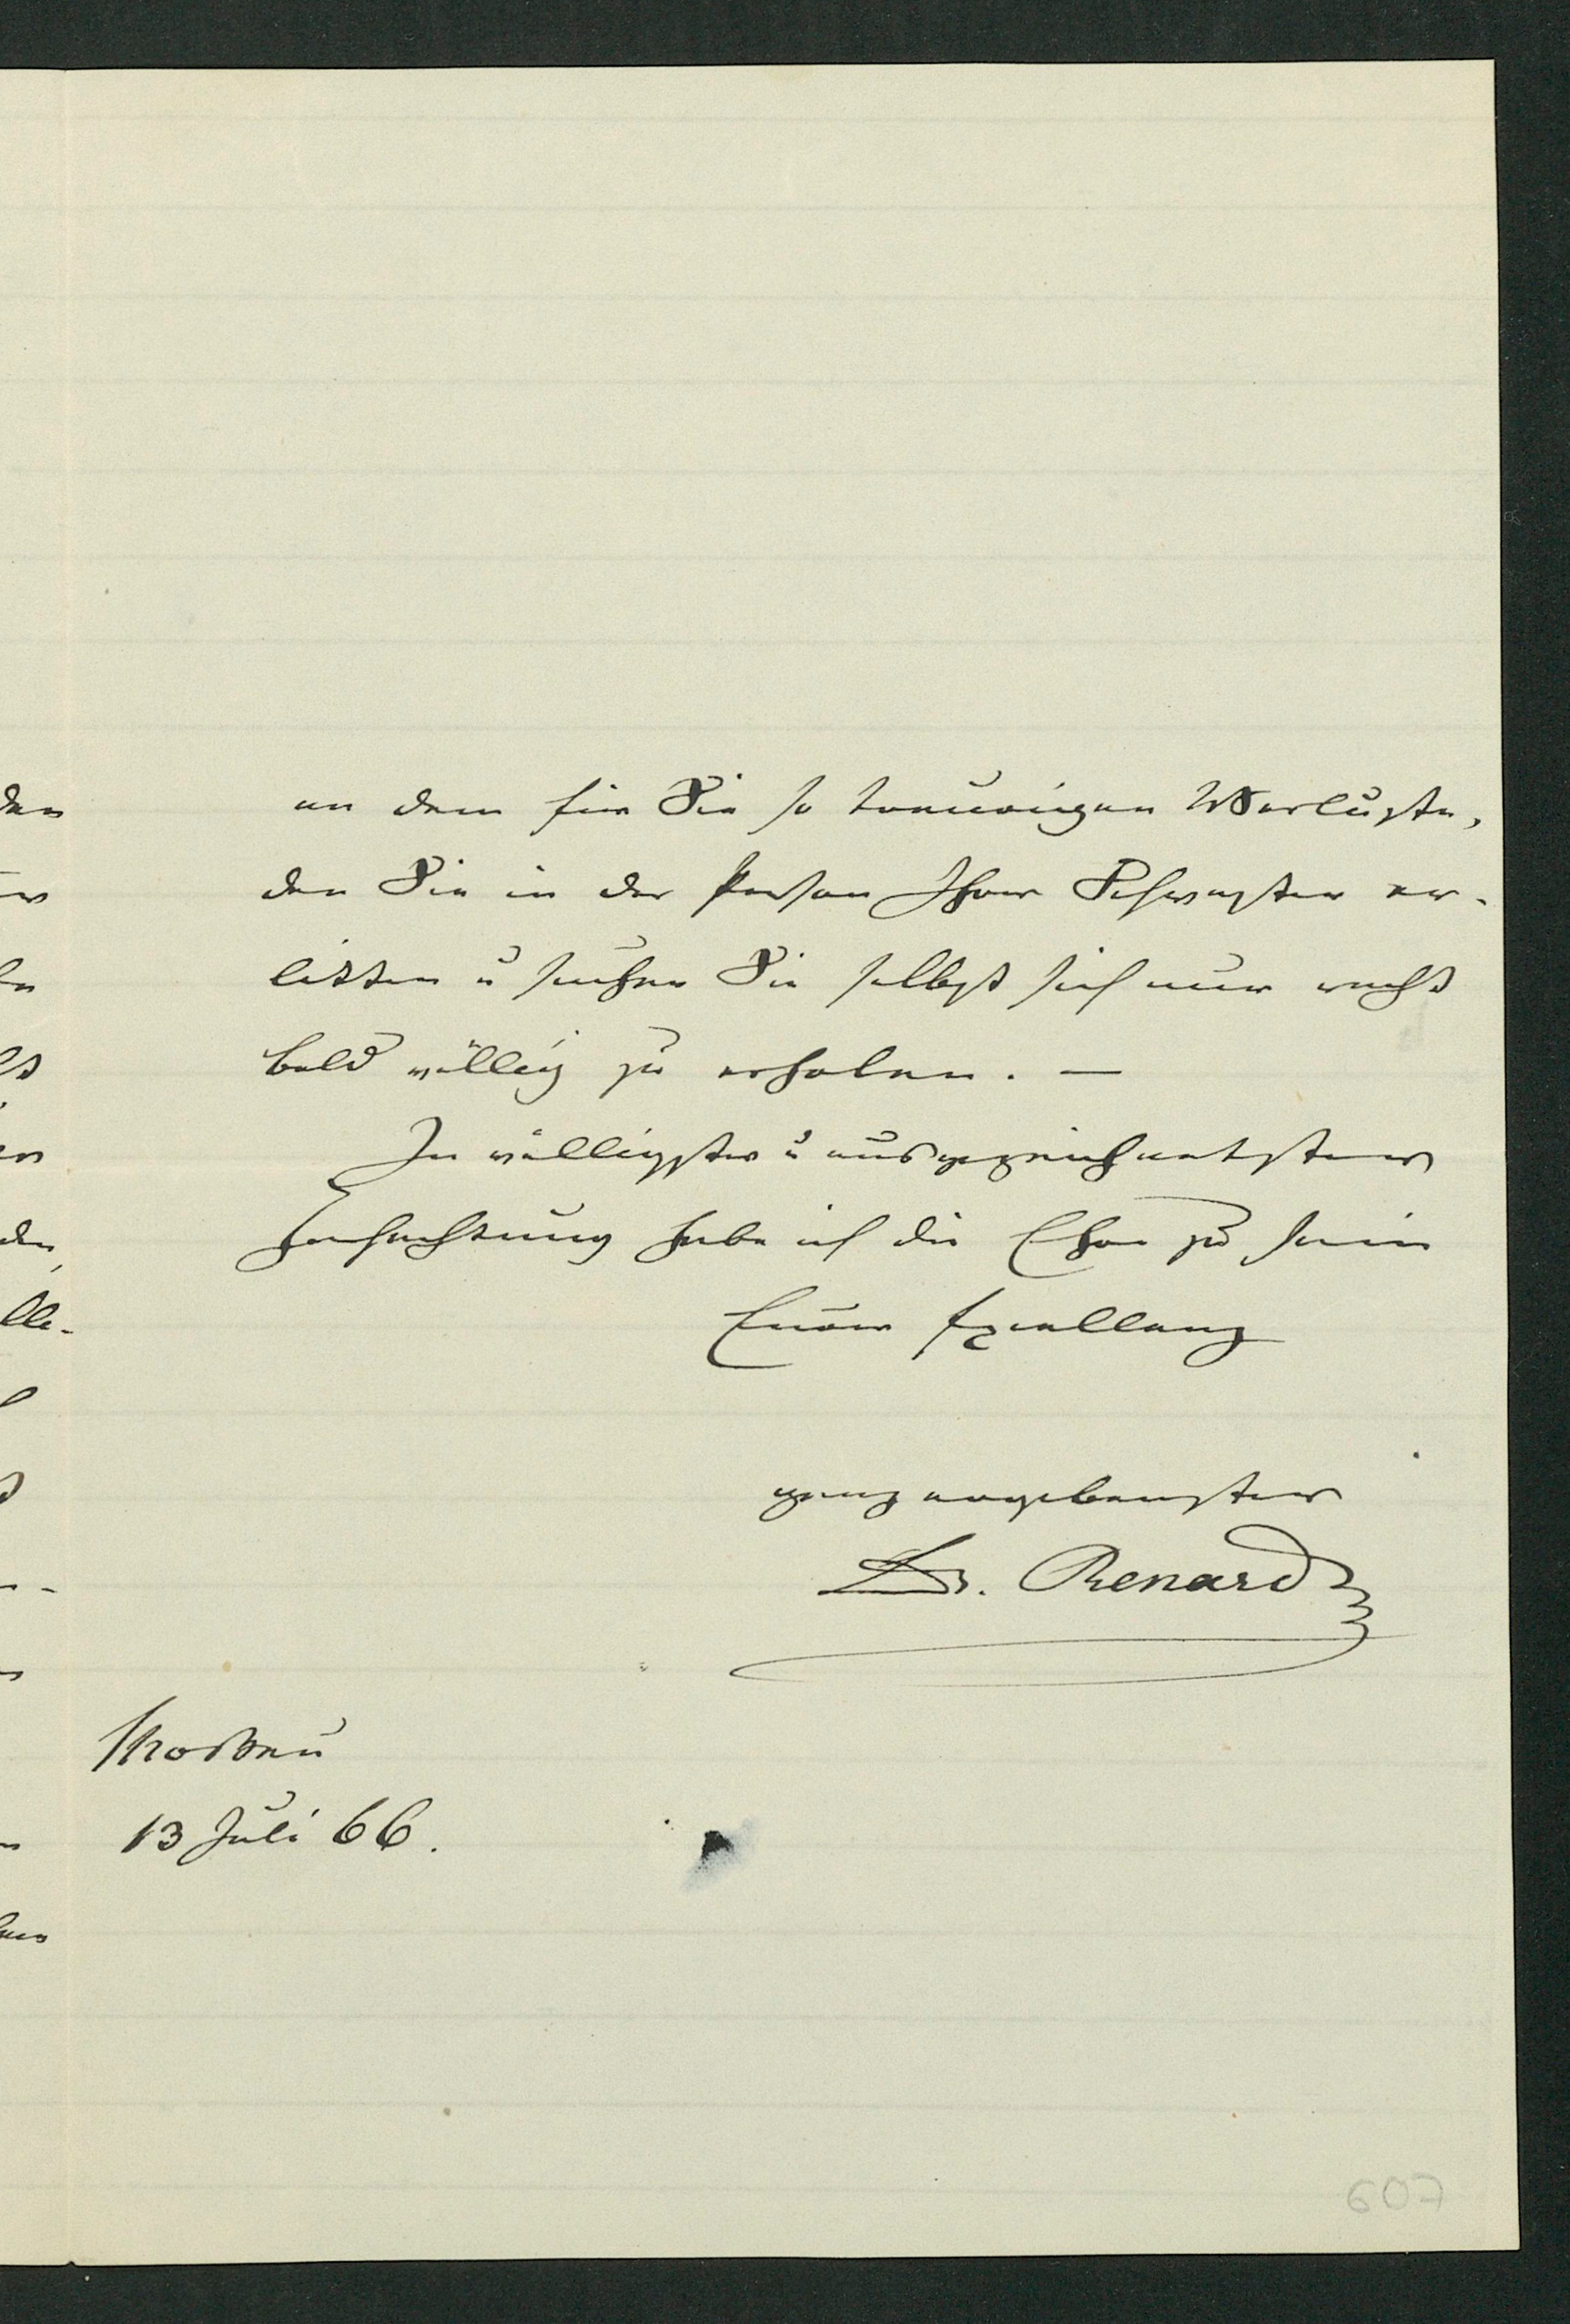 an dem für Sie so traurigen Verluste,
den Sie in der Person Ihrer Schwester er-
litten u suchen Sie selbst sich nur recht
bald völlig zu erholen. —
In völligster u ausgezeichnetster
Hochachtung habe ich die Ehre zu sein
Eurer Exzellenz
ganz ergebenster
Dr. Renard
Moskau
13 Juli 66.
607